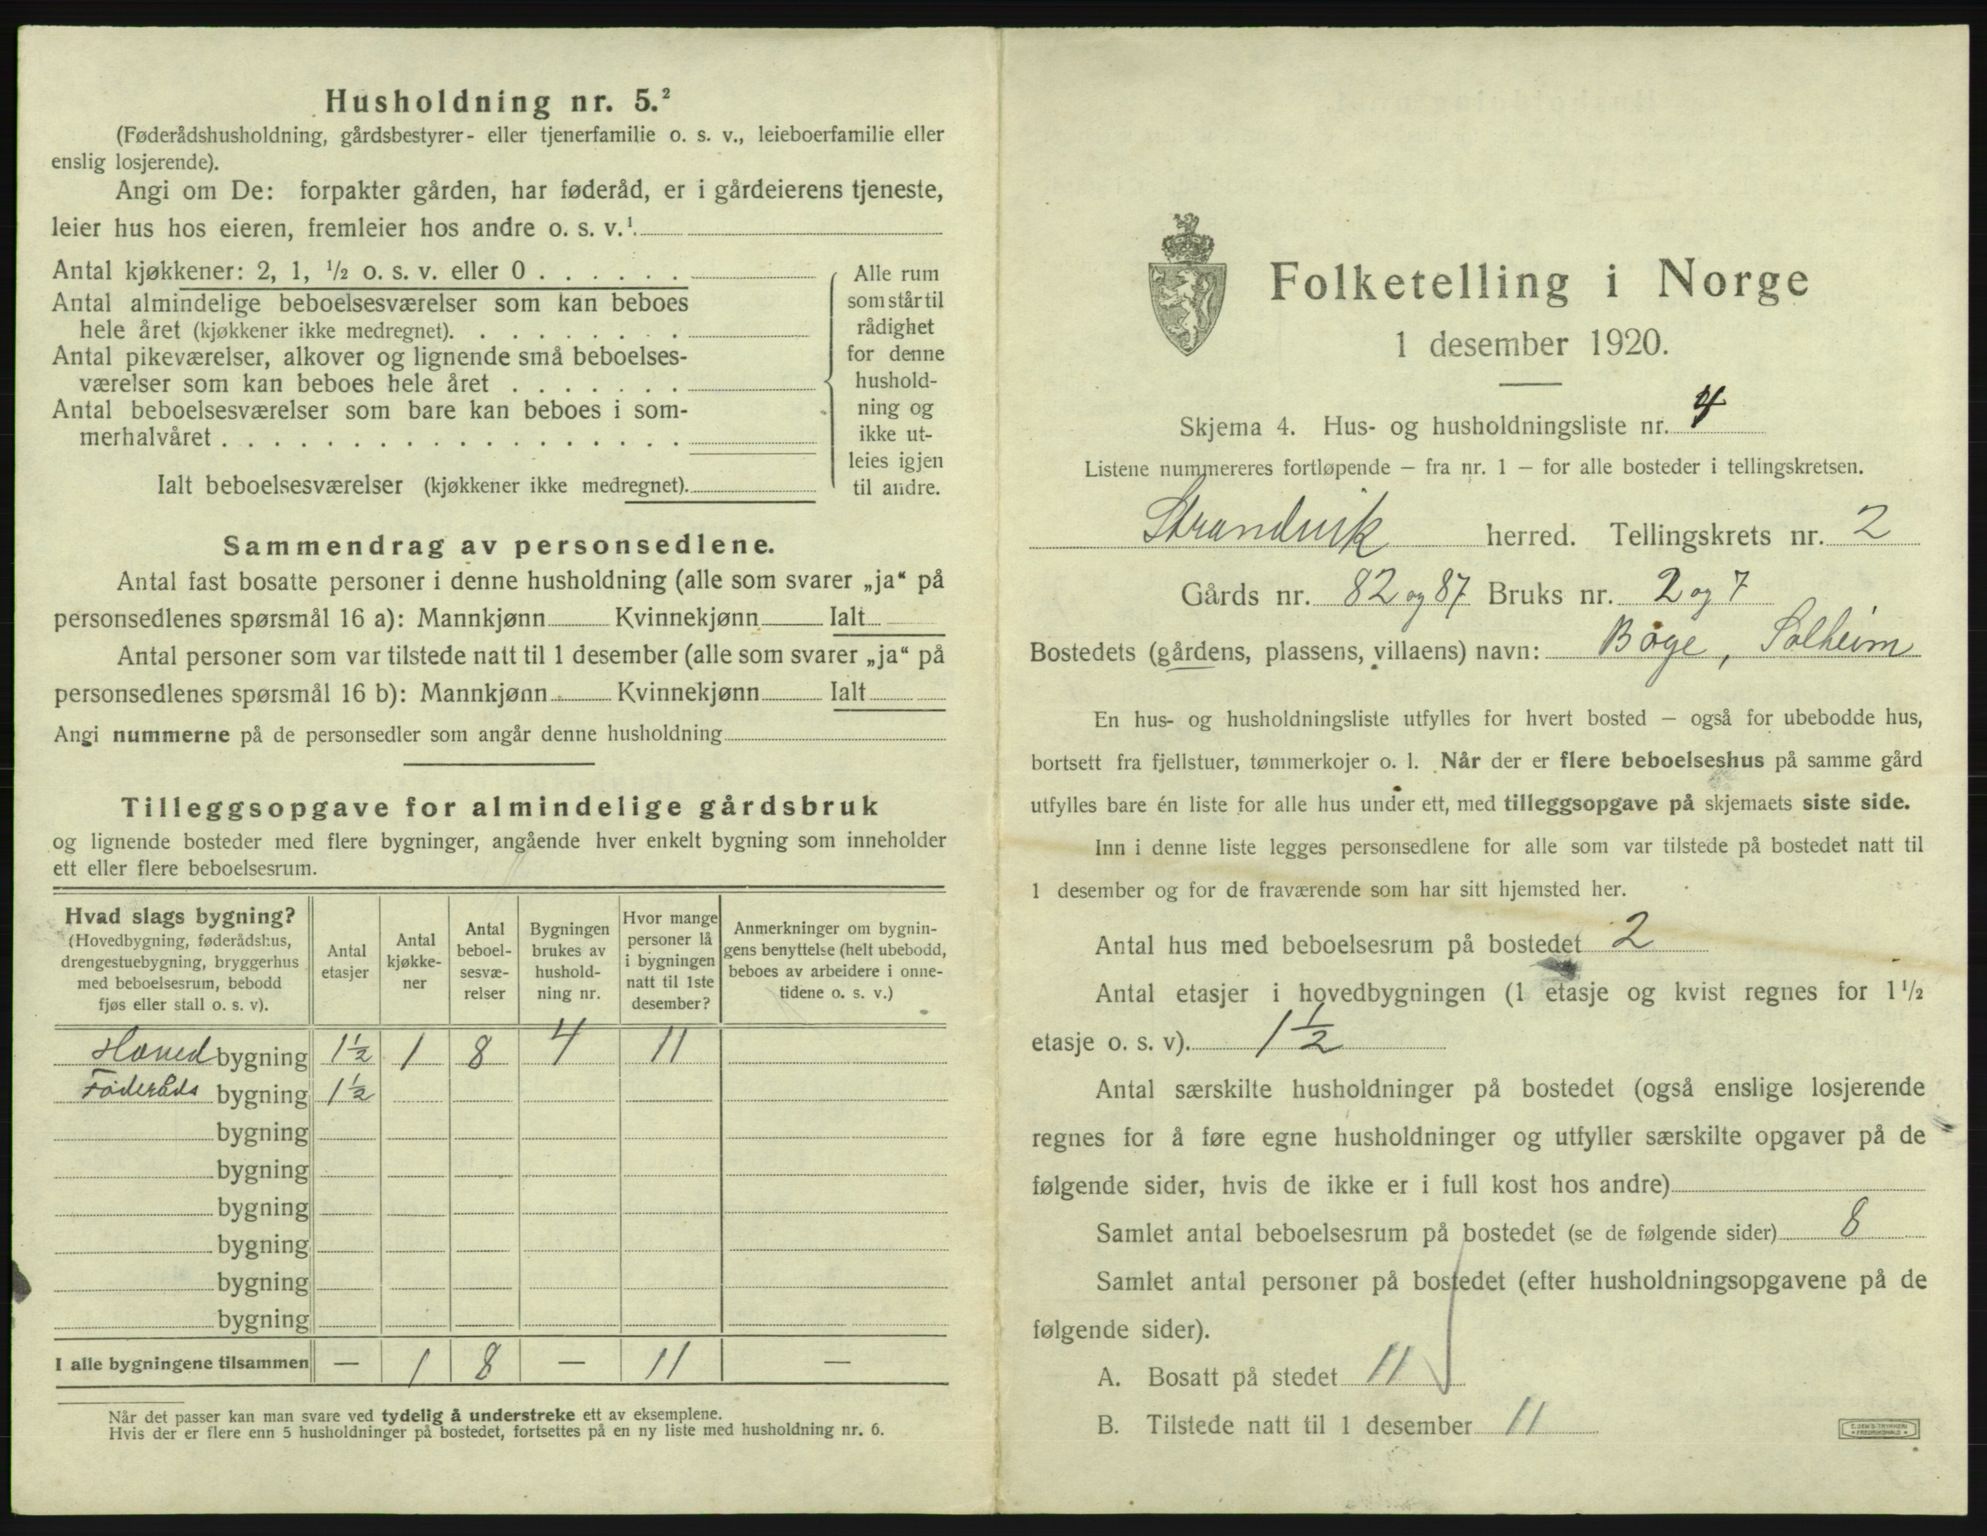 Husholdning nr. 5.²
(Føderådshusholdning, gårdsbestyrer- eller tjenerfamilie o. s. v., leieboerfamilie eller
enslig losjerende).
Angi om De: forpakter gården, har føderåd, er i gårdeierens tjeneste,
leier hus hos eieren, fremleier hos andre o. s. v.¹
Antal kjøkkener: 2, 1, ½ o. s. v. eller 0 . . . . . .
Antal almindelige beboelsesværelser som kan beboes
hele året (kjøkkener ikke medregnet). . . . . . . . .
Antal pikeværelser, alkover og lignende små beboelses-
værelser som kan beboes hele året . . . . . . .
Antal beboelsesværelser som bare kan beboes i som-
merhalvåret . . . . . . . . . . . . . . . . . .
Ialt beboelsesværelser (kjøkkener ikke medregnet).
Alle rum
som står til
rådighet
for denne
hushold-
ning og
ikke ut-
leies igjen
til andre.
Sammendrag av personsedlene.
Antal fast bosatte personer i denne husholdning (alle som svarer „ja“ på
personsedlenes spørsmål 16 a): Mannkjønn Kvinnekjønn Ialt
Antal personer som var tilstede natt til 1 desember (alle som svarer „ja“ på
personsedlenes spørsmål 16 b): Mannkjønn Kvinnekjønn Ialt
Angi nummerne på de personsedler som angår denne husholdning
Tilleggsopgave for almindelige gårdsbruk
og lignende bosteder med flere bygninger, angående hver enkelt bygning som inneholder
ett eller flere beboelsesrum.
Hvad slags bygning?
(Hovedbygning, føderådshus,
drengestuebygning, bryggerhus
med beboelsesrum, bebodd
fjøs eller stall o. s. v).
Antal
etasjer
Antal
kjøkke-
ner
Antal
beboel-
sesvæ-
relser
Bygningen
brukes av
hushold-
ning nr.
Hvor mange
personer lå
i bygningen
natt til 1ste
desember?
Anmerkninger om bygnin-
gens benyttelse (helt ubebodd,
beboes av arbeidere i onne-
tidene o. s. v.)
Hoved bygning 1½ 1 8 4 11
Føderåds bygning 1½
bygning
bygning
bygning
bygning
bygning
bygning
I alle bygningene tilsammen — 1 8 — 11 —
Når det passer kan man svare ved tydelig å understreke ett av eksemplene.
Hvis der er flere enn 5 husholdninger på bostedet, fortsettes på en ny liste med husholdning nr. 6.
Folketelling i Norge
1 desember 1920.
Skjema 4. Hus- og husholdningsliste nr. 4
Listene nummereres fortløpende — fra nr. 1 — for alle bosteder i tellingskretsen.
Strandvik herred. Tellingskrets nr. 2
Gårds nr. 82 og 87 Bruks nr. 2 og 7
Bostedets (gårdens, plassens, villaens) navn: Bøge, Solheim
En hus- og husholdningsliste utfylles for hvert bosted — også for ubebodde hus,
bortsett fra fjellstuer, tømmerkojer o. l. Når der er flere beboelseshus på samme gård
utfylles bare én liste for alle hus under ett, med tilleggsopgave på skjemaets siste side.
Inn i denne liste legges personsedlene for alle som var tilstede på bostedet natt til
1 desember og for de fraværende som har sitt hjemsted her.
Antal hus med beboelsesrum på bostedet 2
Antal etasjer i hovedbygningen (1 etasje og kvist regnes for 1½
etasje o. s. v). 1½
Antal særskilte husholdninger på bostedet (også enslige losjerende
regnes for å føre egne husholdninger og utfyller særskilte opgaver på de
følgende sider, hvis de ikke er i full kost hos andre)
Samlet antal beboelsesrum på bostedet (se de følgende sider) 8
Samlet antal personer på bostedet (efter husholdningsopgavene på de
følgende sider).
A. Bosatt på stedet 11
B. Tilstede natt til 1 desember 11